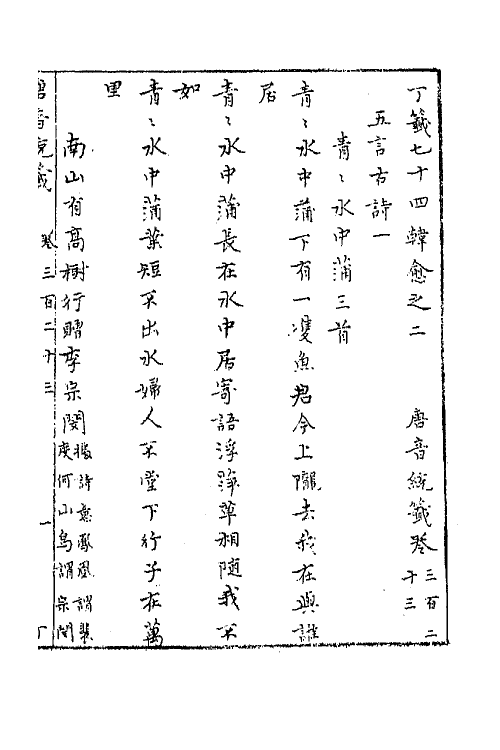 丁籤七十四韓愈之二　唐音統籤卷三百二十三
五言古詩一
青〻水中蒲三首
青〻水中蒲下有一雙魚君今上隴去我在與誰
居
青〻水中蒲長在水中居寄語浮萍草相隨我不
如
青〻水中蒲葉短不出水婦人不堂下行子在萬
里
南山有高樹行贈李宗閔按詩意鳳凰謂裴度何山鳥謂宗閔
唐音統籤　卷三百二十三　一　丁